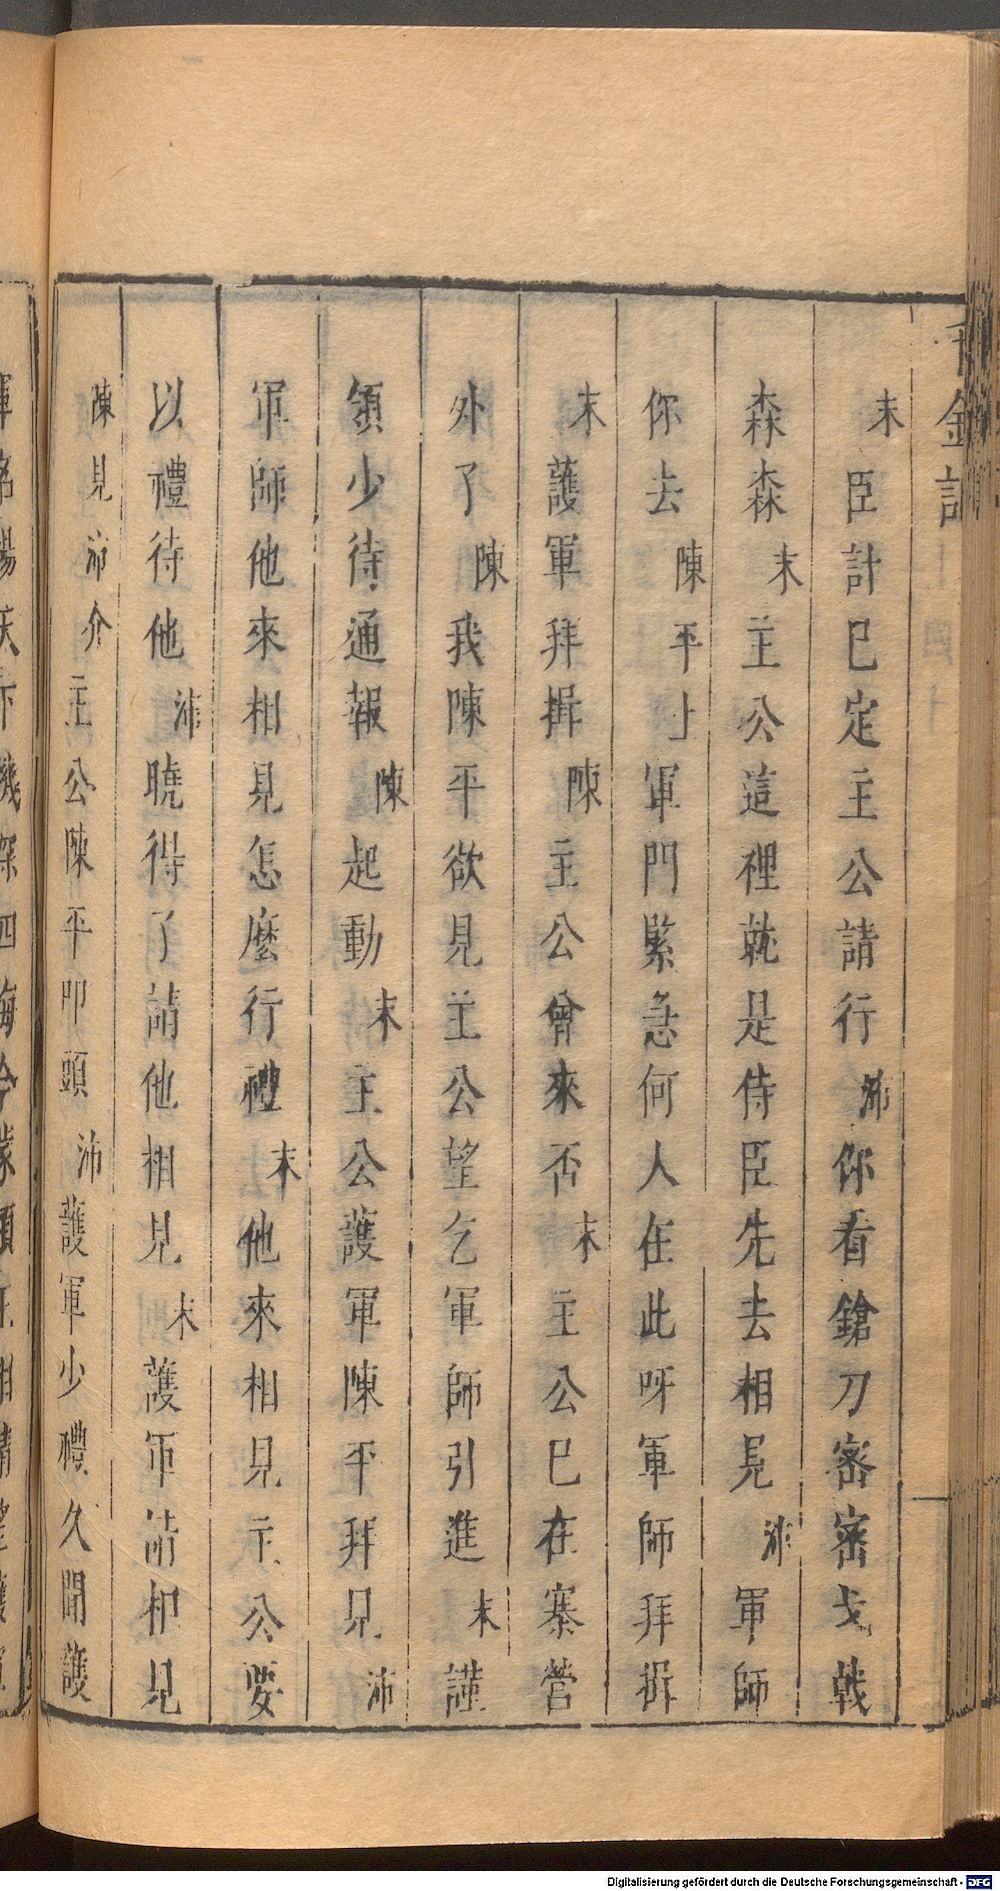 千金記
末臣計已定主公請行沛你看鎗刀密密戈戟
森森末主公這裡就是侍臣先去相見沛軍師
你去陳平上軍門緊急何人在此呀軍師拜揖
末護軍拜揖陳主公曾來否末主公已在寨營
外了陳我陳平欲見主公望乞軍師引進末謹
領少待通報陳起動末主公護軍陳平拜見沛
軍師他來相見怎麼行禮末他來相見主公要
以禮待他沛曉得了請他相見末護軍請相見
陳見沛介主公陳平叩頭沛護軍少禮久聞護
天下機深四海
Digitalisierung gefördert durch die Deutsche Forschungsgemeinschaft - DFG